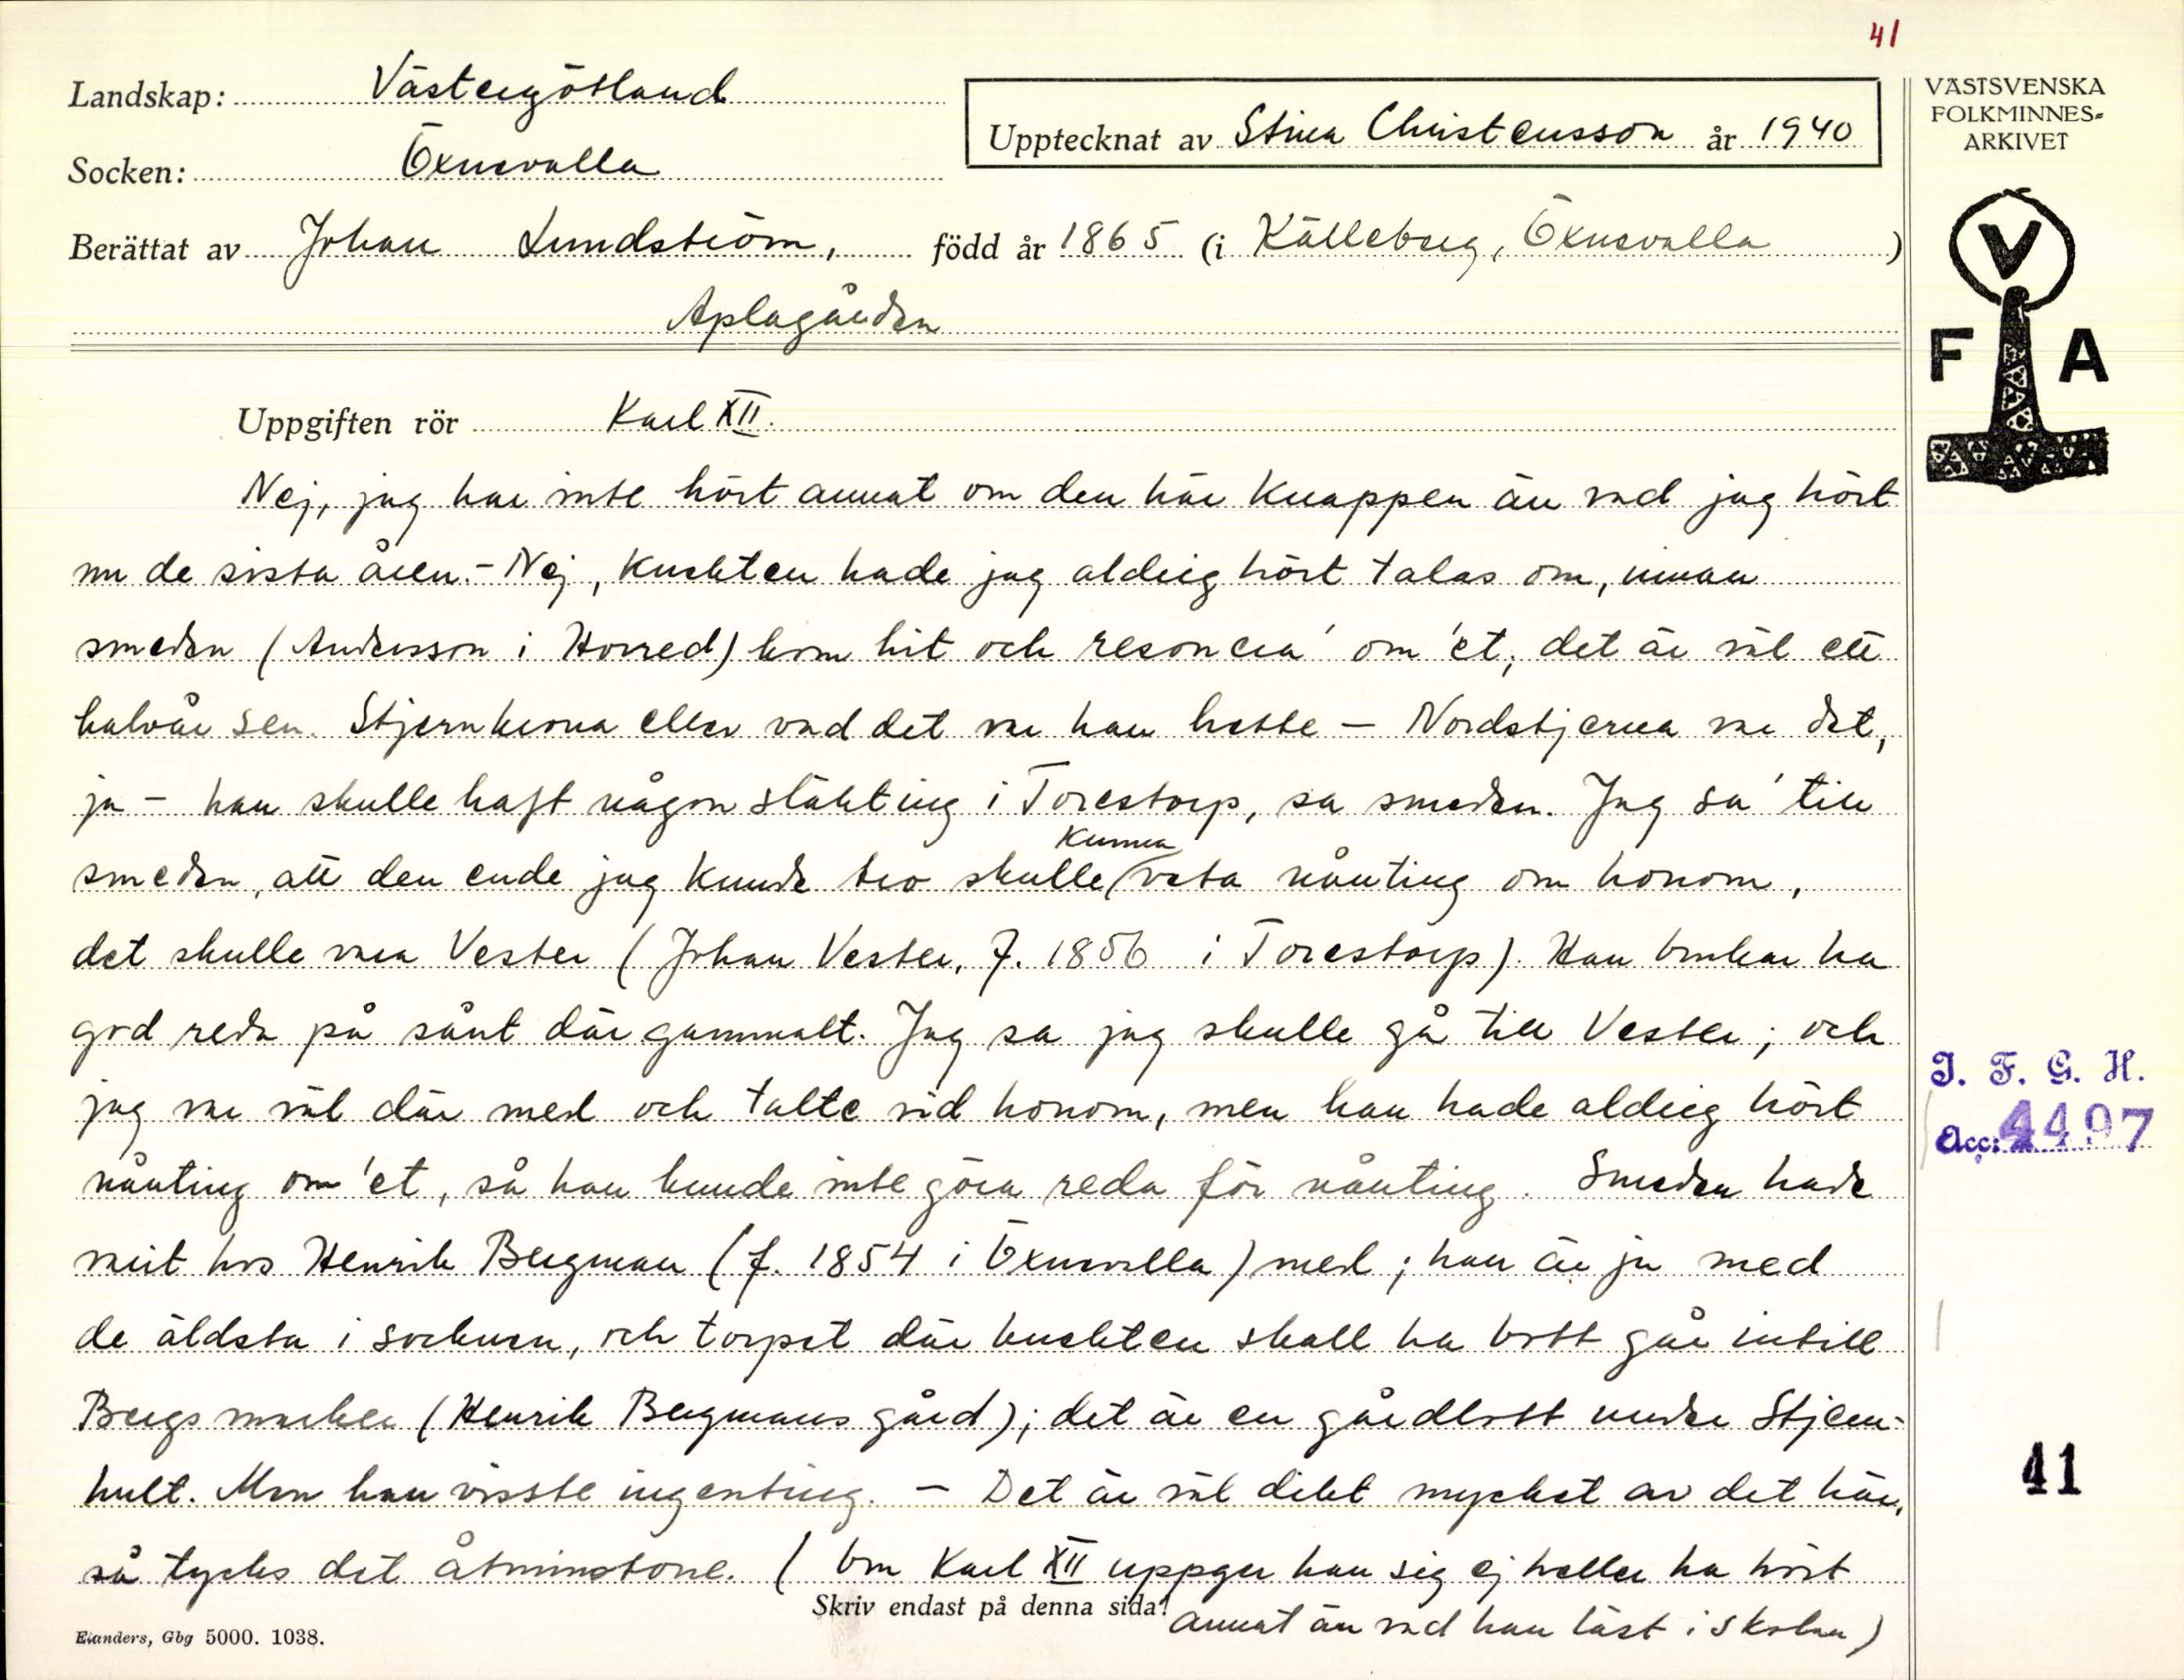 41
Landskap: Västergötland
Socken: Öxnevalla
Upptecknat av Stina Christensson år 1940
Berättat av Johan Lundström, född år 1865 (i Källeberg, Öxnevalla)
Aplagården
VÄSTSVENSKA
FOLKMINNES-
ARKIVET
V
F A
Uppgiften rör Karl XII.
Nej, jag har inte hört annat om den här knappen än vad jag hört
nu de sista åren. - Nej, knekten hade jag aldrig hört talas om, innan
smeden (Andersson i Horred) kom hit och resonera' om 'et; det är väl ett
halvår sen. Stjernkrona eller vad det var han hette - Nordstjerna var det,
ja - han skulle haft någon släkting i Torestorp, sa smeden. Jag sa' till
smeden, att den ende jag kunde tro skulle kunna veta nånting om honom,
det skulle vara Vester (Johan Vester, f. 1856 i Torestorp). Han brukar ha
god reda på sånt där gammalt. Jag sa jag skulle gå till Vester; och
jag var väl där med och talte vid honom, men han hade aldrig hört
nånting om 'et, så han kunde inte göra reda för nånting. Smeden hade
varit hos Henrik Bergman (f. 1854 i Öxnevalla) med; han är ju med
de äldsta i socknen, och torpet där knekten skall ha bott går intill
Bergsmarken (Henrik Bergmans gård); det är en gårdlott under Stjern-
hult. Men han visste ingenting. - Det är väl dikt mycket av det här,
så tycks det åtminstone. (Om Karl XII uppger han sig ej heller ha hört
annat än vad han läst i skolan)
Skriv endast på denna sida!
Elanders, Gbg 5000. 1038.
I. F. G. H.
Acc: 4497
41